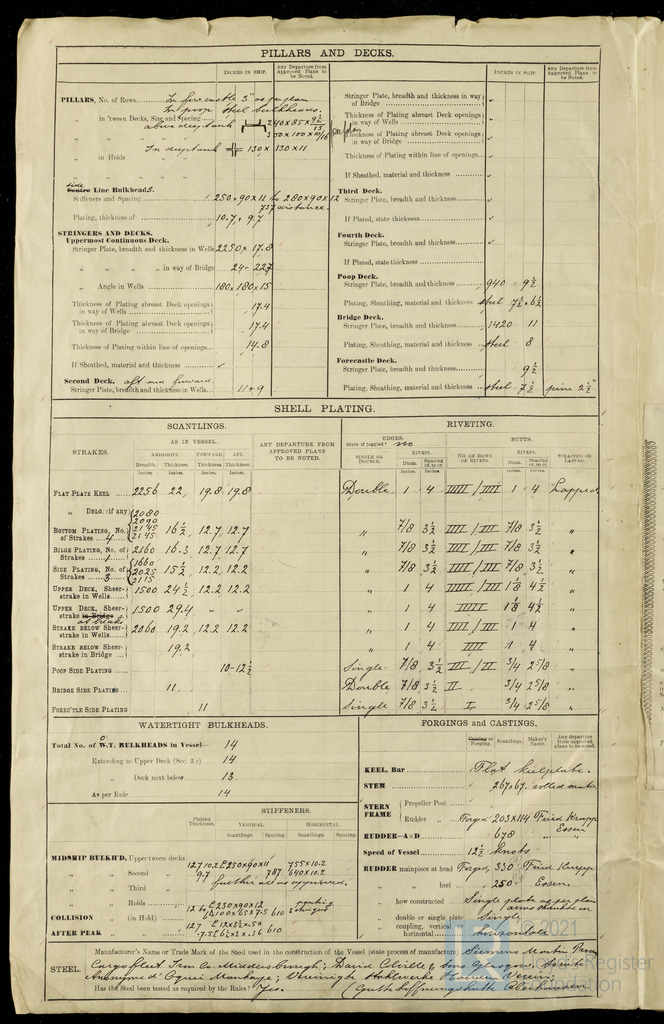 PILLARS AND DECKS.
INCHES IN SHIP.
Any Departure from Approved Plans to be Noted.
PILLARS, No. of Rows In forecastle 3" as per plan
In poop steel bulkheads.
„ in 'tween Decks, Size and Spacing
above deep tank
„ in Holds In deep tank 130 x 130 x 11
side
Centre Line Bulkheads.
Stiffeners and Spacing 250 x 90 x 11 to 280 x 90 x 12
757 distance.
Plating, thickness of 10.7 + 9.7
STRINGERS AND DECKS.
Uppermost Continuous Deck.
Stringer Plate, breadth and thickness in Wells 2250 x 17.8
„ „ „ „ in way of Bridge
„ Angle in Wells 180 x 180 x 15
Thickness of Plating abreast Deck openings in way of Wells 17.4
Thickness of Plating abreast Deck openings in way of Bridge 17.4
Thickness of Plating within line of openings 14.8
If Sheathed, material and thickness ✓
Second Deck, aft and forward.
Stringer Plate, breadth and thickness in Wells 11 + 9
INCHES IN SHIP.
Any Departure from Approved Plans to be Noted.
Stringer Plate, breadth and thickness in way of Bridge
Thickness of Plating abreast Deck openings in way of Wells
Thickness of Plating abreast Deck openings in way of Bridge
Thickness of Plating within line of openings
If Sheathed, material and thickness
Third Deck.
Stringer Plate, breadth and thickness
If Plated, state thickness
Fourth Deck.
Stringer Plate, breadth and thickness
If Plated, state thickness
Poop Deck.
Stringer Plate, breadth and thickness 940 9½
Plating, Sheathing, material and thickness steel 7½ + 6½
Bridge Deck.
Stringer Plate, breadth and thickness 1420 11
Plating, Sheathing, material and thickness steel 8
Forecastle Deck.
Stringer Plate, breadth and thickness 9½
Plating, Sheathing, material and thickness steel 7½ pine 2½"
SHELL PLATING.
SCANTLINGS.
RIVETING.
STRAKES.
AS IN VESSEL.
AMIDSHIPS. FORWARD. AFT.
Breadth. Thickness. Thickness. Thickness.
Inches. Inches. Inches. Inches.
ANY DEPARTURE FROM APPROVED PLANS TO BE NOTED.
EDGES.
State if joggled? no
SINGLE OR DOUBLE.
RIVETS.
Diam. Spacing cr. to cr.
BUTTS.
NO. OF ROWS OF RIVETS.
RIVETS.
Diam. Spacing cr. to cr.
STRAPPED OR LAPPED.
FLAT PLATE KEEL 2256 22 19.8 19.8 Double 1 4 IIII / III 1 4 Lapped
„ DBLG. (if any)
BOTTOM PLATING, No. of Strakes 4 2080 2090 2145 2145 16½ 12.7 12.7 „ 7/8 3½ IIII / III 7/8 3½ „
BILGE PLATING, No. of Strakes 1 2160 16.3 12.7 12.7 „ 7/8 3½ IIII / III 7/8 3½ „
SIDE PLATING, No. of Strakes 3 1660 2025 2115 15½ 12.2 12.2 „ 7/8 3½ IIII / III 7/8 3½ „
UPPER DECK, Sheerstrake in Wells 1500 24½ 12.2 12.2 „ 1 4 1⅛ 4½ „
UPPER DECK, Sheerstrake in Bridge at breaks 1500 29.4 „ „ „ 1 4 1⅛ 4½ „
STRAKE BELOW Sheerstrake in Wells 2060 19.2 12.2 12.2 „ 1 4 IIII / III 1 4 „
STRAKE BELOW Sheerstrake in Bridge 19.2 „ 1 4 IIII 1 4 „
POOP SIDE PLATING 10-12½ Single 7/8 3½ III / II 3/4 2 5/8 „
BRIDGE SIDE PLATING 11 Double 7/8 3½ II 3/4 2 5/8 „
FORECTLE SIDE PLATING 11 Single 7/8 3½ I 3/4 2 5/8 „
WATERTIGHT BULKHEADS.
Total No. of W.T. BULKHEADS in Vessel 14
Extending to Upper Deck (Sec. 3 c) 14
„ Deck next below 13
As per Rule 14
STIFFENERS.
Plating Thickness.
VERTICAL. HORIZONTAL.
Scantlings. Spacing. Scantlings. Spacing.
MIDSHIP BULKH'D, Upper 'tween decks
„ „ Second „ 9.7 787 640 x 10.2
„ „ Third „ further aft as approved.
„ „ Holds 230 x 90 x 12
COLLISION „ (in Hold) 610
AFTER PEAK „ „ 610
FORGINGS and CASTINGS.
Casting or Forging. Scantlings. Maker's Name. Any departure from approved plans to be noted.
KEEL, Bar Flat keelplate.
STEM 267 x 67 rolled
STERN FRAME
Propeller Post
Rudder „ Forged 203 x 114 Fried Krupp
RUDDER—A x D 678 Essen
Speed of Vessel 12½ knots
RUDDER mainpiece at head Forged 330 Fried Krupp
„ „ heel 250 Essen.
„ how constructed Single plate as per plan
„ double or single plate Single
„ coupling, vertical or horizontal horizontale
STEEL.
Manufacturer's Name or Trade Mark of the Steel used in the construction of the Vessel (state process of manufacture) Siemens Martin
Cargofleet Iron Co. Middlesbrough; David Colville & Sons Glasgow;
Has the Steel been tested as required by the Rules? Yes. (Gutehoffnungshütte Oberhausen
2021
Lloyd's Register
Foundation